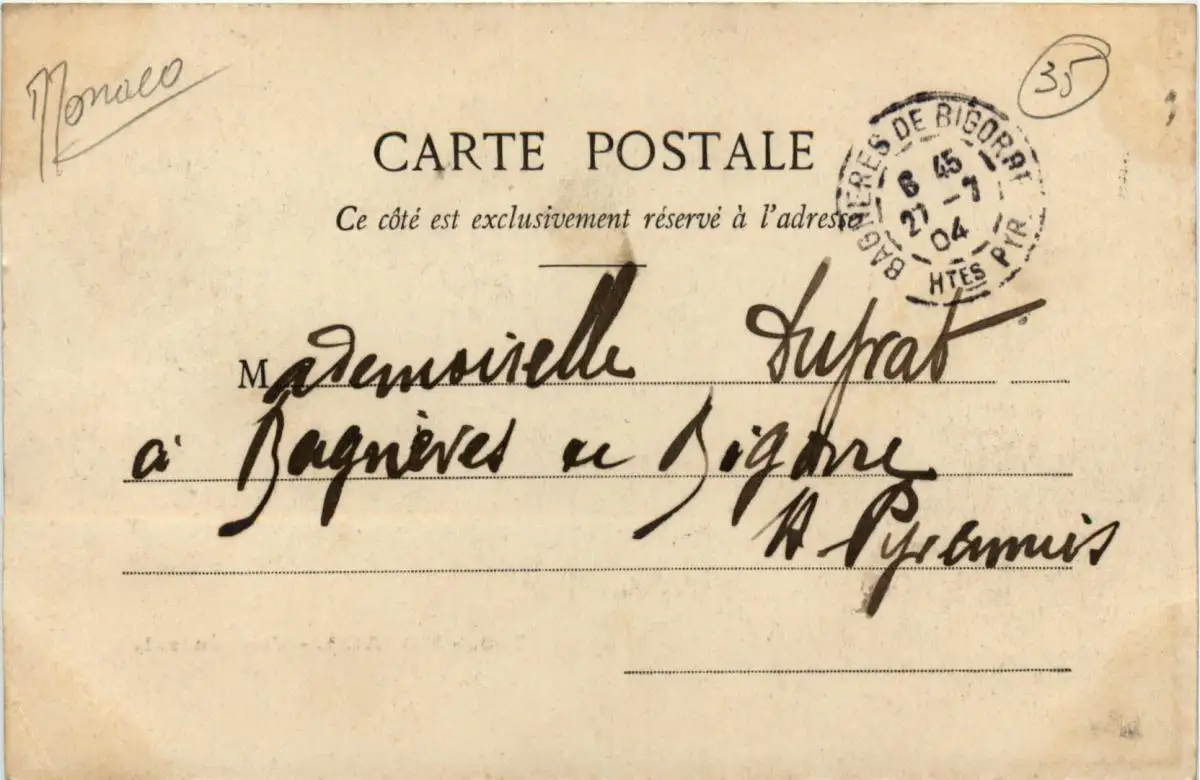 Monaco
35
CARTE POSTALE
Ce côté est exclusivement réservé à l'adresse
BAGNERES DE BIGORRE
6 45
27 -7
04
HTES PYR.
Mademoiselle Duprat
à Bagnères de Bigorre
H Pyrennées